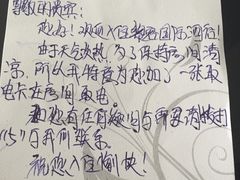 尊敬的贵宾:
您好!欢迎入住智选国际酒店!
由于天气炎热,为了保持房间清
凉,所以我特意为您加了一张取
电卡在房间取电
如您有任何疑问与需要请拨打
"5"与我们联系
祝您入住愉快!